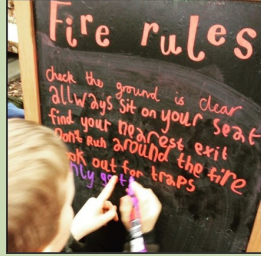 Fire rules
check the ground is clear
allways sit on your seat
find your nearest exit
Don't Run around the fire
out for traps
only go